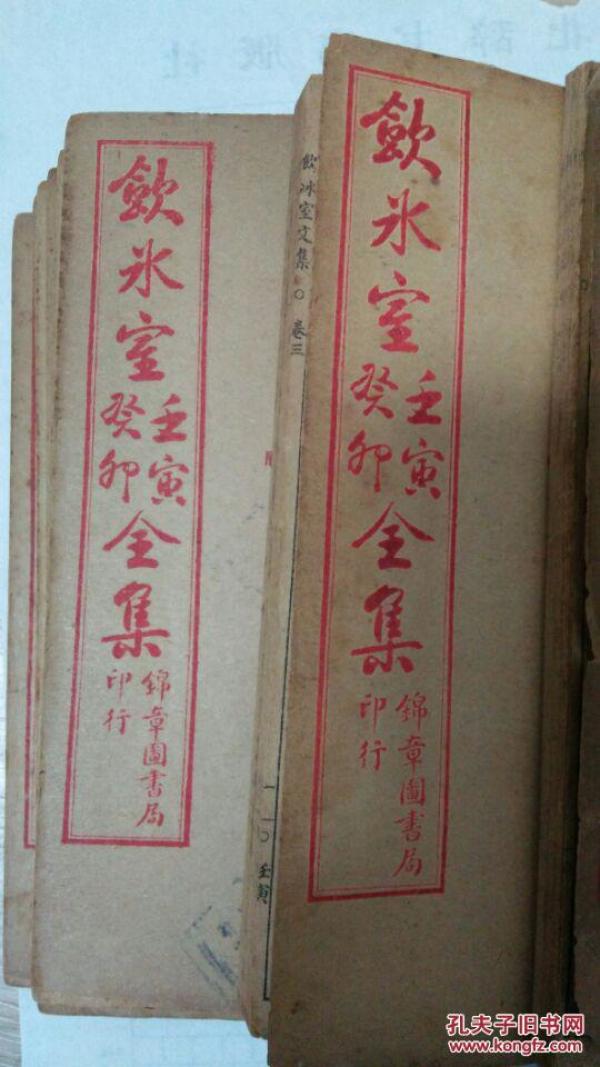 飲冰室壬寅癸卯全集
錦章圖書局印行
飲冰室文集○卷三
壬寅
飲冰室壬寅癸卯全集
錦章圖書局印行
孔夫子旧书网
www.kongfz.com